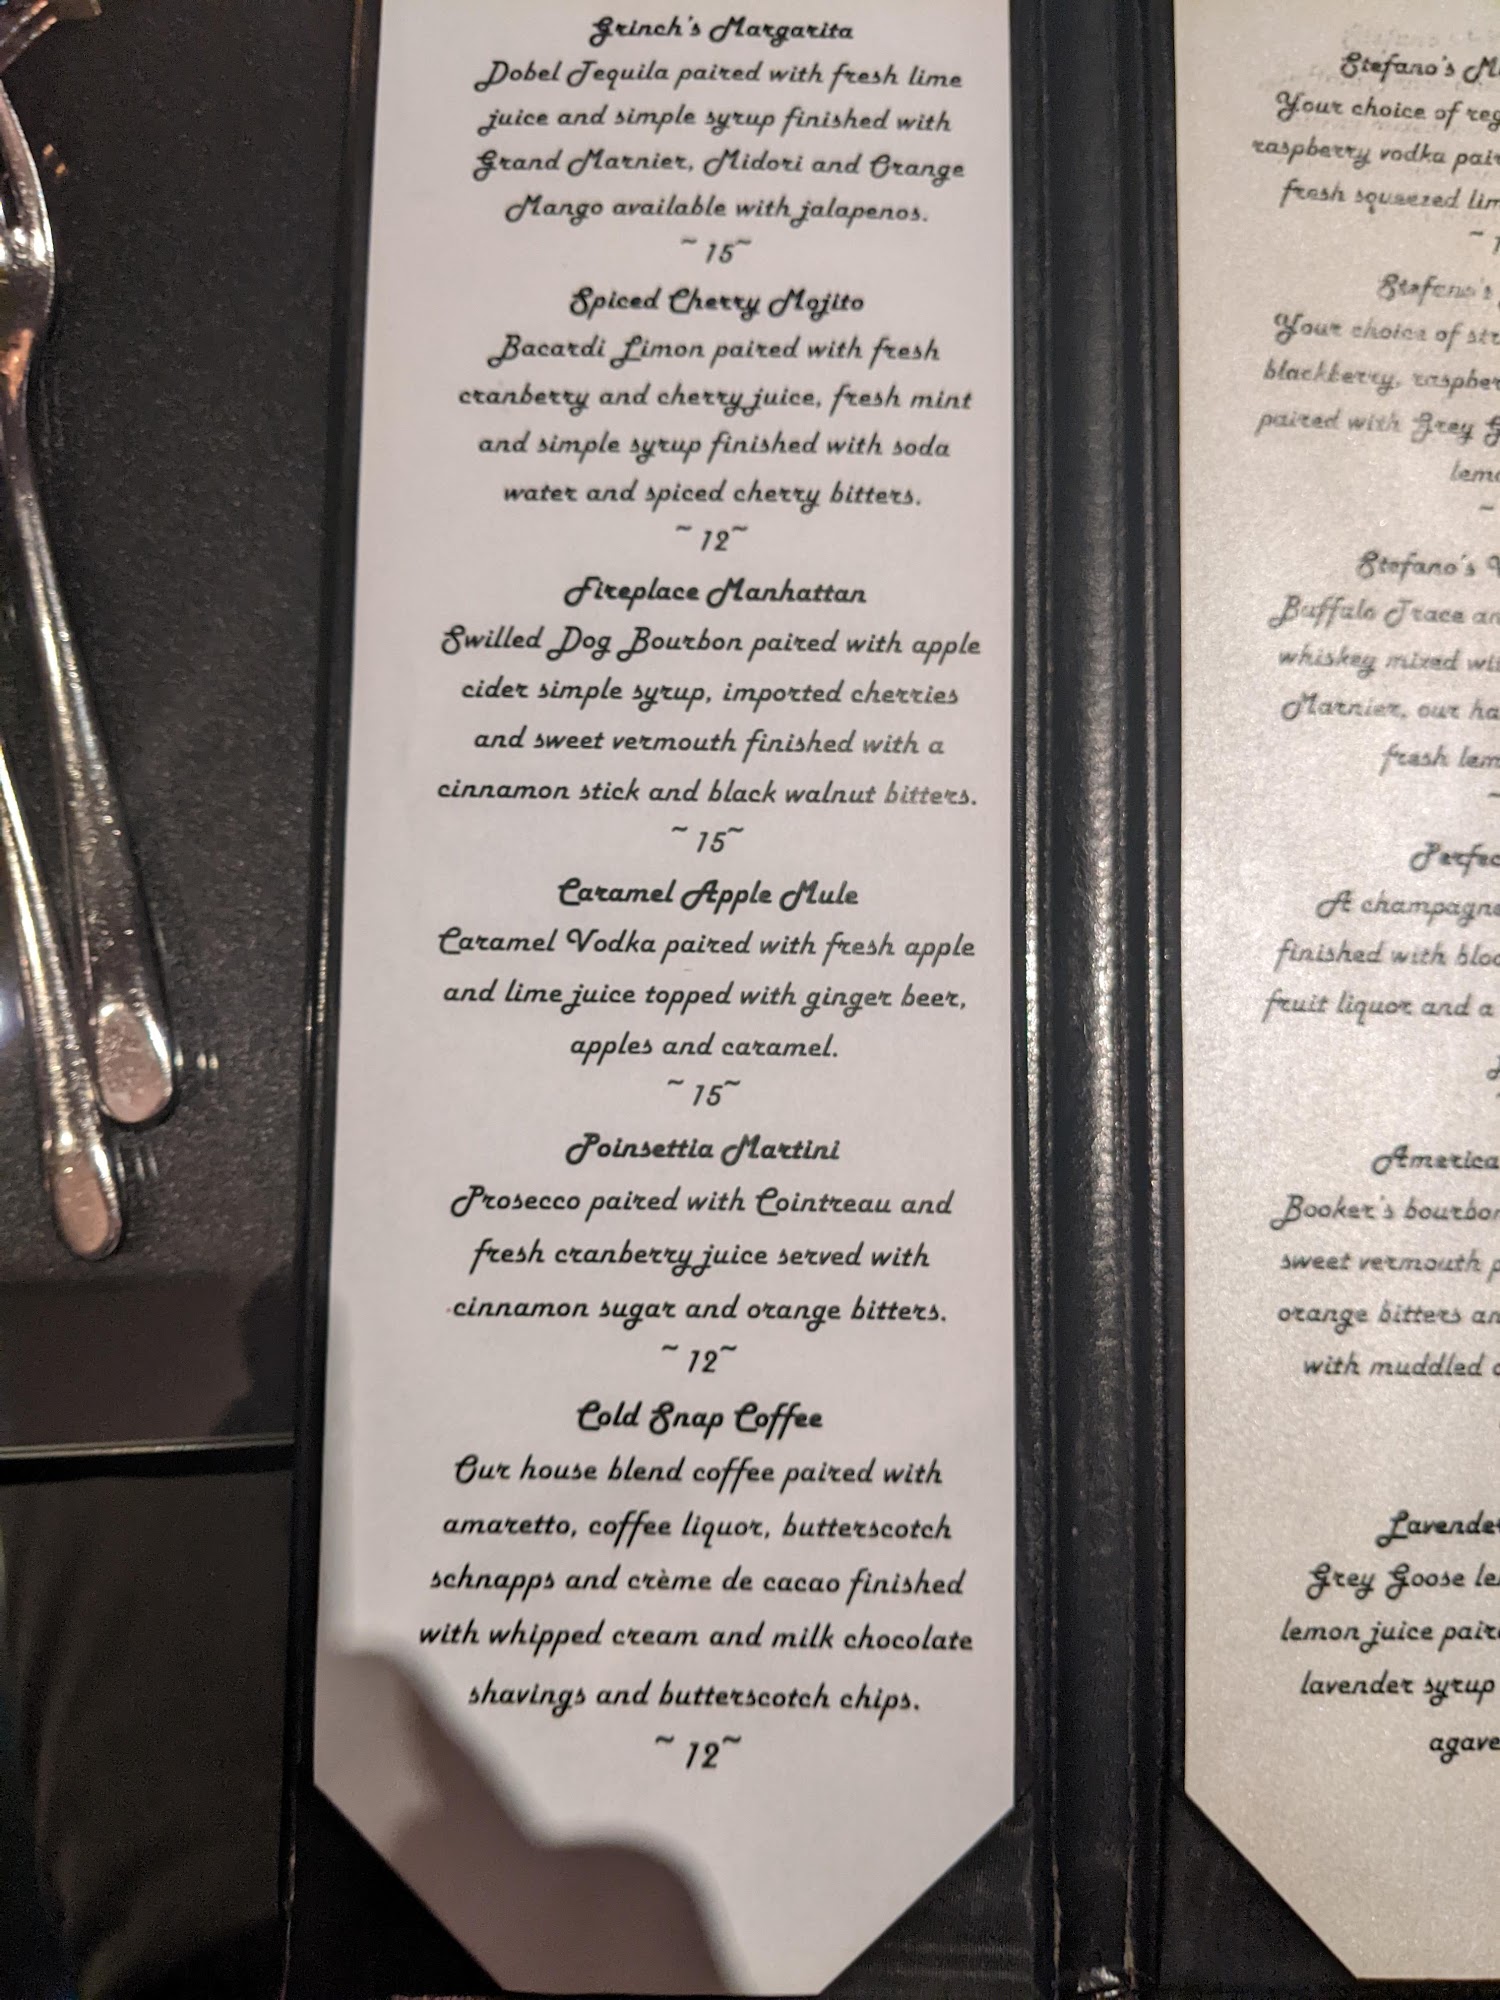 Grinch's Margarita
Dobel Tequila paired with fresh lime
juice and simple syrup finished with
Grand Marnier, Midori and Orange
Mango available with jalapenos.
~ 15~
Spiced Cherry Mojito
Bacardi Limon paired with fresh
cranberry and cherry juice, fresh mint
and simple syrup finished with soda
water and spiced cherry bitters.
~ 12~
Fireplace Manhattan
Swilled Dog Bourbon paired with apple
cider simple syrup, imported cherries
and sweet vermouth finished with a
cinnamon stick and black walnut bitters.
~ 15~
Caramel Apple Mule
Caramel Vodka paired with fresh apple
and lime juice topped with ginger beer,
apples and caramel.
~ 15~
Poinsettia Martini
Prosecco paired with Cointreau and
fresh cranberry juice served with
cinnamon sugar and orange bitters.
~ 12~
Cold Snap Coffee
Our house blend coffee paired with
amaretto, coffee liquor, butterscotch
schnapps and crème de cacao finished
with whipped cream and milk chocolate
shavings and butterscotch chips.
~ 12~
Stefano's
Your choice of
raspberry vodka
fresh squeezed
Stefano's
Your choice of
blackberry,
paired with Grey
Stefano's
Buffalo Trace
whiskey mixed
Marnier, our
fresh
A champagne
finished with
fruit liquor and a
Booker's bourbon
sweet vermouth
orange bitters
with muddled
Grey Goose
lemon juice
lavender syrup
agave